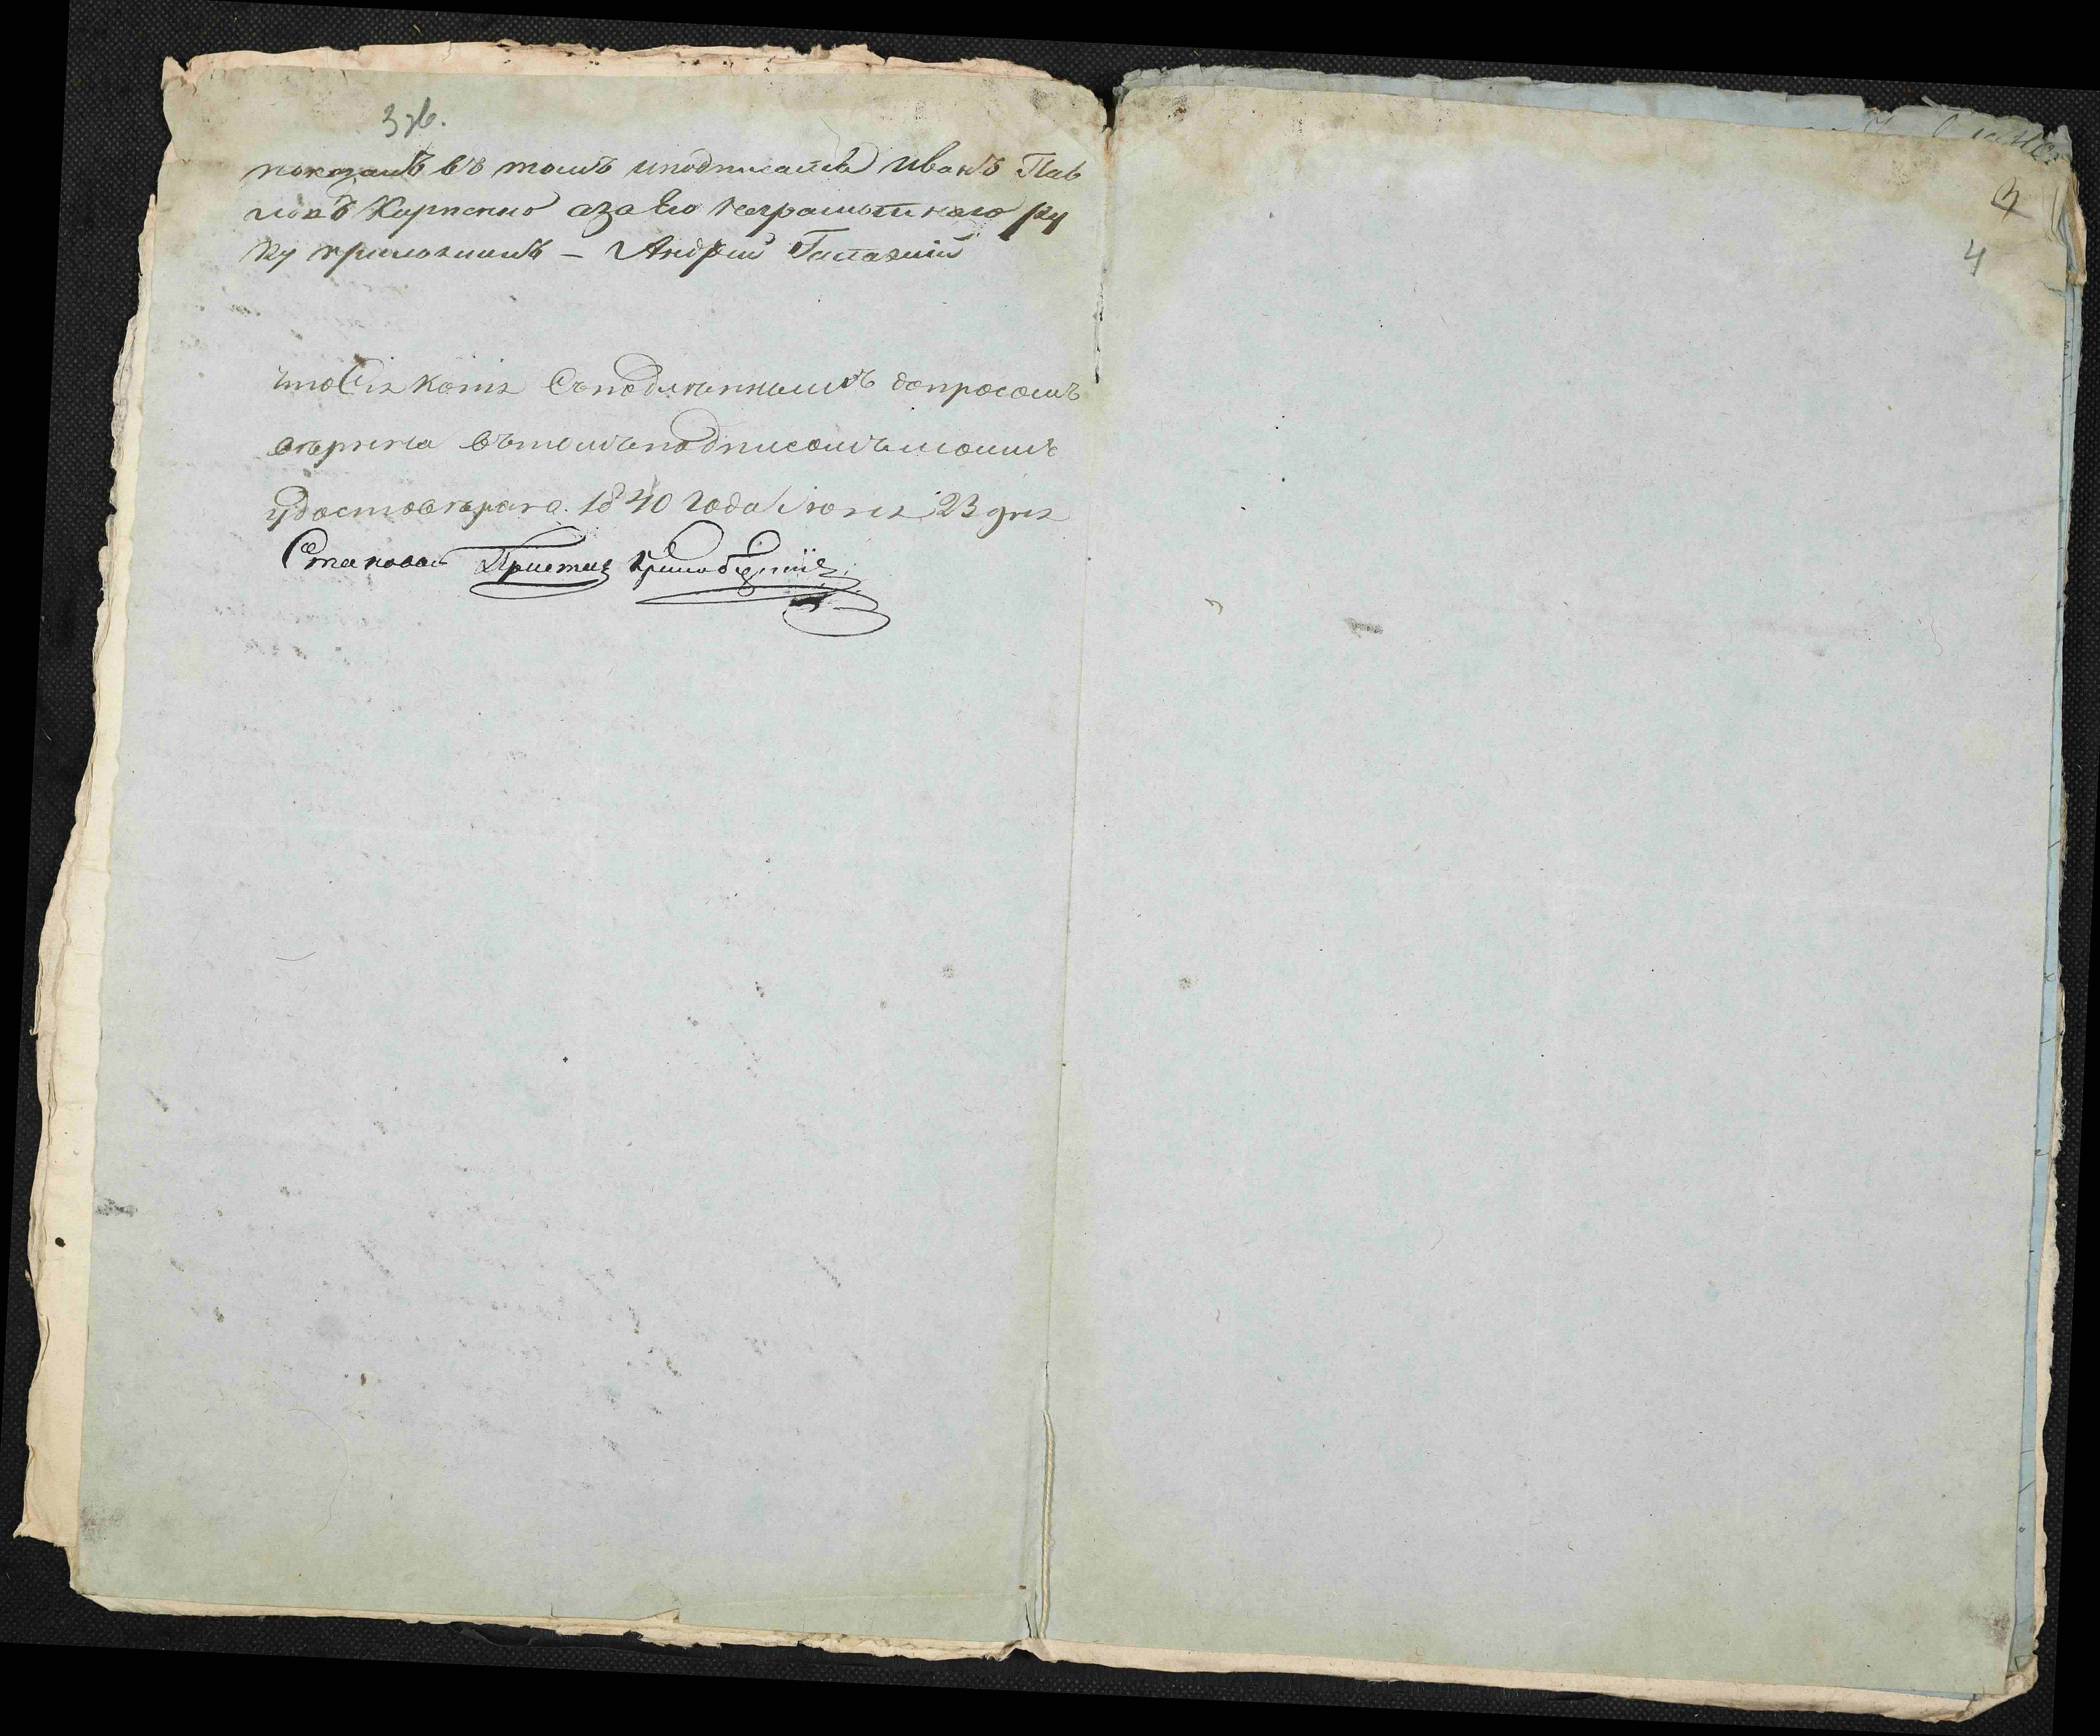 3 зв.
показалъ въ томъ иподписался Иванъ Пав
ловъ Карпенко азаево неграмотного ру
ку приложилъ – Андрей
что Сія копія Съподлиннымъ допросомъ
верна вътомъ подписомъ моимъ
удостоверяю. 1840 года Июня 23 дня
Становой Пристав
3
4